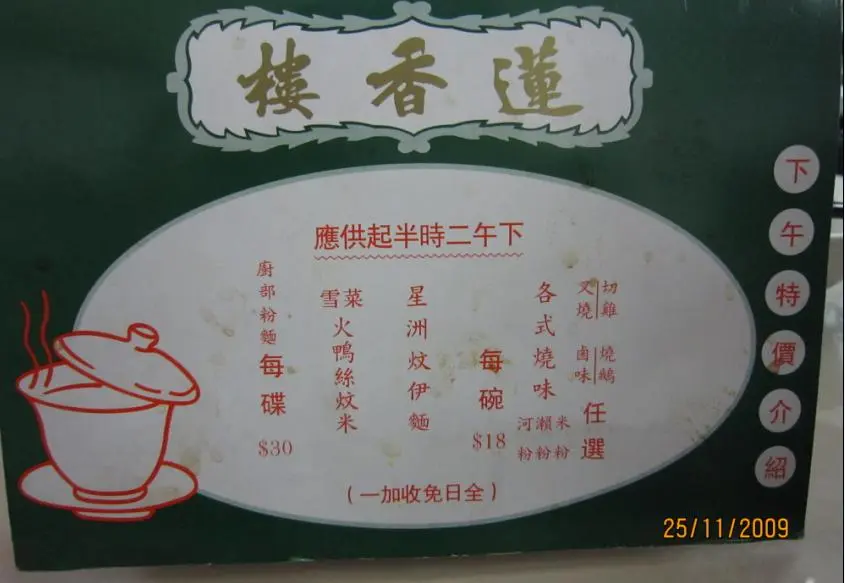 蓮香樓
下午特價介紹
下午二時半起供應
切雞
叉燒
燒鵝
鹵味
任選
各式燒味
米粉
瀨粉
河粉
每碗
$18
星洲炆伊麵
雪菜火鴨絲炆米
廚部粉麵
每碟
$30
(全日免收加一)
25/11/2009